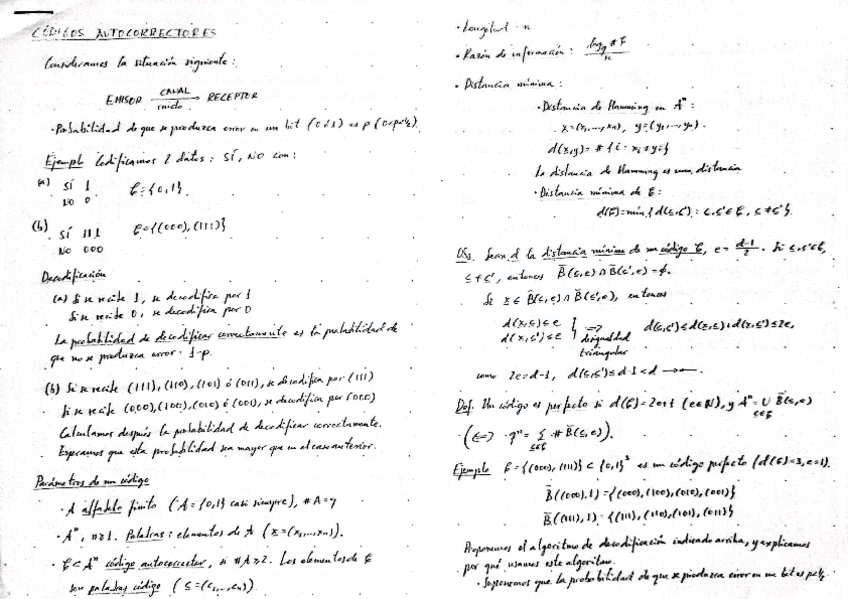 CÓDIGOS AUTOCORRECTORES
Consideramos la situación siguiente:
EMISOR CANAL RECEPTOR
ruido
· Probabilidad de que se produzca error en un bit (0 ó 1) es p (0<p<½)
Ejemplo Codificamos 2 datos: SÍ, NO con:
(a) SÍ 1
NO 0
C={0,1}.
(b) SÍ 111
NO 000
C={(000),(111)}
Decodificación
(a) Si se recibe 1, se decodifica por 1
Si se recibe 0, se decodifica por 0
La probabilidad de decodificar correctamente es la probabilidad de
que no se produzca error: 1-p.
(b) Si se recibe (111),(110),(101) ó (011), se decodifica por (111)
Si se recibe (000),(100),(010) ó (001), se decodifica por (000)
Calculamos después la probabilidad de decodificar correctamente.
Esperamos que esta probabilidad sea mayor que en el caso anterior.
Parámetros de un código
· A alfabeto finito (A={0,1} casi siempre), #A=q
· Aⁿ, n≥1. Palabras: elementos de A (x=(x₁,...,xₙ)).
· C⊂Aⁿ código autocorrector, si #A≥2. Los elementos de C
son palabras código (c=(c₁,...,cₙ).
· Longitud: n
· Razón de información: log_q #C / n
· Distancia mínima:
· Distancia de Hamming en Aⁿ:
x=(x₁,...,xₙ), y=(y₁,...,yₙ).
d(x,y) = #{i: xᵢ≠yᵢ}
La distancia de Hamming es una distancia
· Distancia mínima de C:
d(C)=min{d(c,c'): c,c'∈C, c≠c'}.
Obs. Sean d la distancia mínima de un código C, e = (d-1)/2. Si c,c'∈C,
c≠c', entonces B̄(c,e)∩B̄(c',e)=∅.
Si x∈B̄(c,e)∩B̄(c',e), entonces
d(x,c)≤e
d(x,c')≤e
⟹ desigualdad triangular
d(c,c')≤d(x,c)+d(x,c')≤2e,
como 2e=d-1, d(c,c')≤d-1<d →←.
Def. Un código es perfecto si d(C)=2e+1 (e∈ℕ), y Aⁿ=∪ B̄(c,e)
c∈C
(⟺ qⁿ = Σ #B̄(c,e)).
c∈C
Ejemplo C={(000),(111)}⊂{0,1}³ es un código perfecto (d(C)=3,e=1).
B̄(000,1)={(000),(100),(010),(001)}
B̄(111,1)={(111),(110),(101),(011)}
Proponemos el algoritmo de decodificación indicado arriba, y explicamos
por qué usamos este algoritmo.
· Suponemos que la probabilidad de que se produzca error en un bit es p<½.